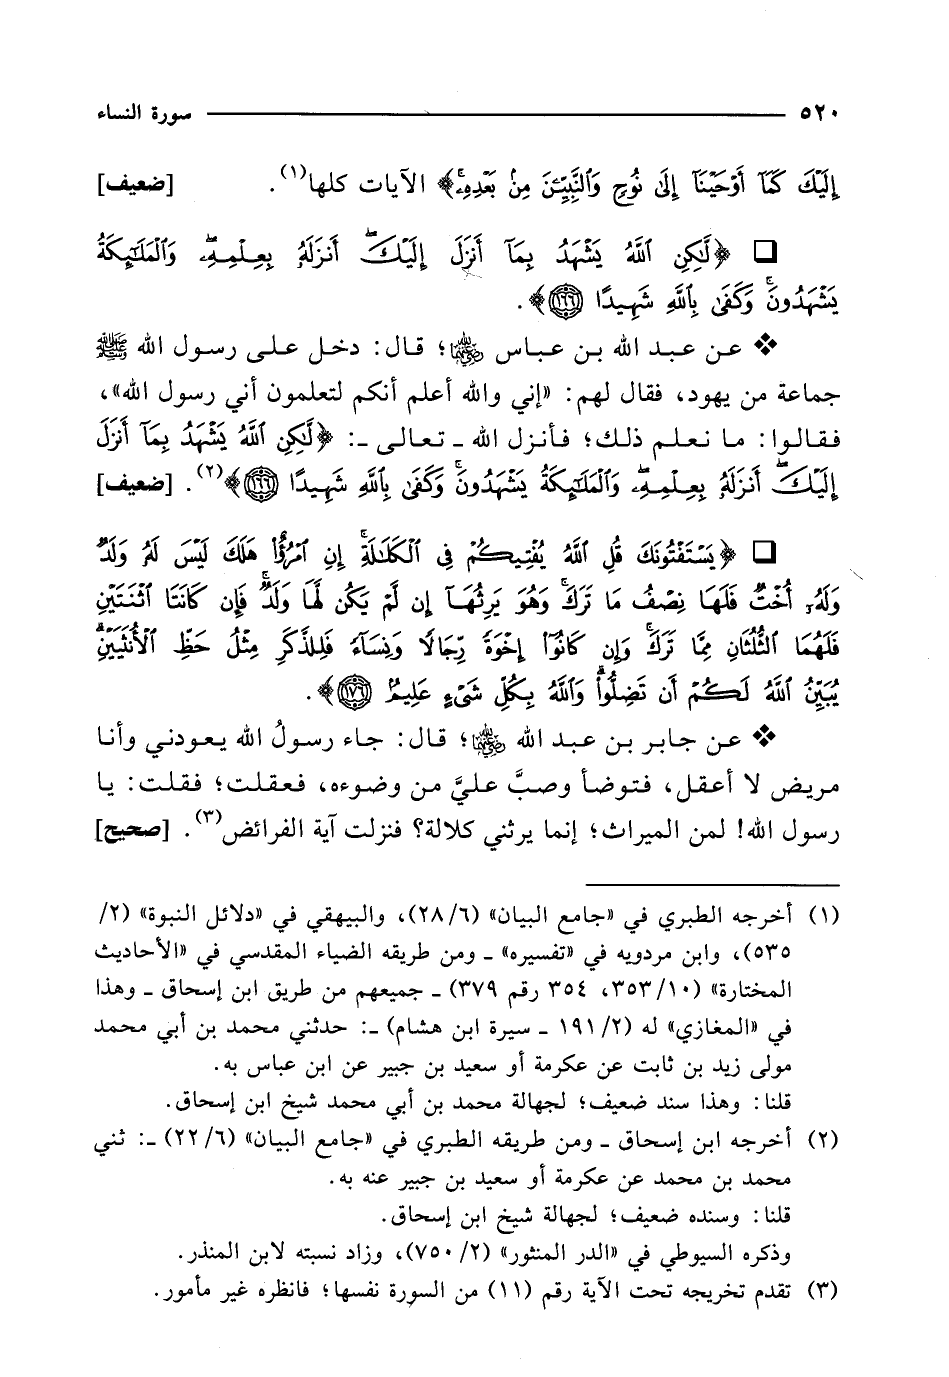 ٥٢٠ سورة النساء
إِلَيْكَ كَمَآ أَوْحَيْنَآ إِلَىٰ نُوحٍ وَٱلنَّبِيِّـۧنَ مِنۢ بَعْدِهِۦۚ﴾ الآيات كلها(١). [ضعيف]
❑ ﴿لَّٰكِنِ ٱللَّهُ يَشْهَدُ بِمَآ أَنزَلَ إِلَيْكَۖ أَنزَلَهُۥ بِعِلْمِهِۦۖ وَٱلْمَلَٰٓئِكَةُ
يَشْهَدُونَۚ وَكَفَىٰ بِٱللَّهِ شَهِيدًا ١٦٦﴾.
❖ عن عبد الله بن عباس رضي الله عنهما؛ قال: دخل على رسول الله ﷺ
جماعة من يهود، فقال لهم: «إني والله أعلم أنكم لتعلمون أني رسول الله»،
فقالوا: ما نعلم ذلك؛ فأنزل الله ـ تعالى ـ: ﴿لَّٰكِنِ ٱللَّهُ يَشْهَدُ بِمَآ أَنزَلَ
إِلَيْكَۖ أَنزَلَهُۥ بِعِلْمِهِۦۖ وَٱلْمَلَٰٓئِكَةُ يَشْهَدُونَۚ وَكَفَىٰ بِٱللَّهِ شَهِيدًا ١٦٦﴾(٢). [ضعيف]
❑ ﴿يَسْتَفْتُونَكَ قُلِ ٱللَّهُ يُفْتِيكُمْ فِى ٱلْكَلَٰلَةِۚ إِنِ ٱمْرُؤٌا۟ هَلَكَ لَيْسَ لَهُۥ وَلَدٌ
وَلَهُۥٓ أُخْتٌ فَلَهَا نِصْفُ مَا تَرَكَۚ وَهُوَ يَرِثُهَآ إِن لَّمْ يَكُن لَّهَا وَلَدٌۚ فَإِن كَانَتَا ٱثْنَتَيْنِ
فَلَهُمَا ٱلثُّلُثَانِ مِمَّا تَرَكَۚ وَإِن كَانُوٓا۟ إِخْوَةً رِّجَالًا وَنِسَآءً فَلِلذَّكَرِ مِثْلُ حَظِّ ٱلْأُنثَيَيْنِۗ
يُبَيِّنُ ٱللَّهُ لَكُمْ أَن تَضِلُّوا۟ۗ وَٱللَّهُ بِكُلِّ شَىْءٍ عَلِيمٌۢ ١٧٦﴾.
❖ عن جابر بن عبد الله رضي الله عنهما؛ قال: جاء رسولُ الله يعودني وأنا
مريض لا أعقل، فتوضأ وصبَّ عليَّ من وضوءه، فعقلت؛ فقلت: يا
رسول الله! لمن الميراث؛ إنما يرثني كلالة؟ فنزلت آية الفرائض(٣). [صحيح]
(١) أخرجه الطبري في «جامع البيان» (٦/ ٢٨)، والبيهقي في «دلائل النبوة» (٢/
٥٣٥)، وابن مردويه في «تفسيره» ـ ومن طريقه الضياء المقدسي في «الأحاديث
المختارة» (١٠/ ٣٥٣، ٣٥٤ رقم ٣٧٩) ـ جميعهم من طريق ابن إسحاق ـ وهذا
في «المغازي» له (٢/ ١٩١ ـ سيرة ابن هشام) ـ: حدثني محمد بن أبي محمد
مولى زيد بن ثابت عن عكرمة أو سعيد بن جبير عن ابن عباس به.
قلنا: وهذا سند ضعيف؛ لجهالة محمد بن أبي محمد شيخ ابن إسحاق.
(٢) أخرجه ابن إسحاق ـ ومن طريقه الطبري في «جامع البيان» (٦/ ٢٢) ـ: ثني
محمد بن محمد عن عكرمة أو سعيد بن جبير عنه به.
قلنا: وسنده ضعيف؛ لجهالة شيخ ابن إسحاق.
وذكره السيوطي في «الدر المنثور» (٢/ ٧٥٠)، وزاد نسبته لابن المنذر.
(٣) تقدم تخريجه تحت الآية رقم (١١) من السورة نفسها؛ فانظره غير مأمور.